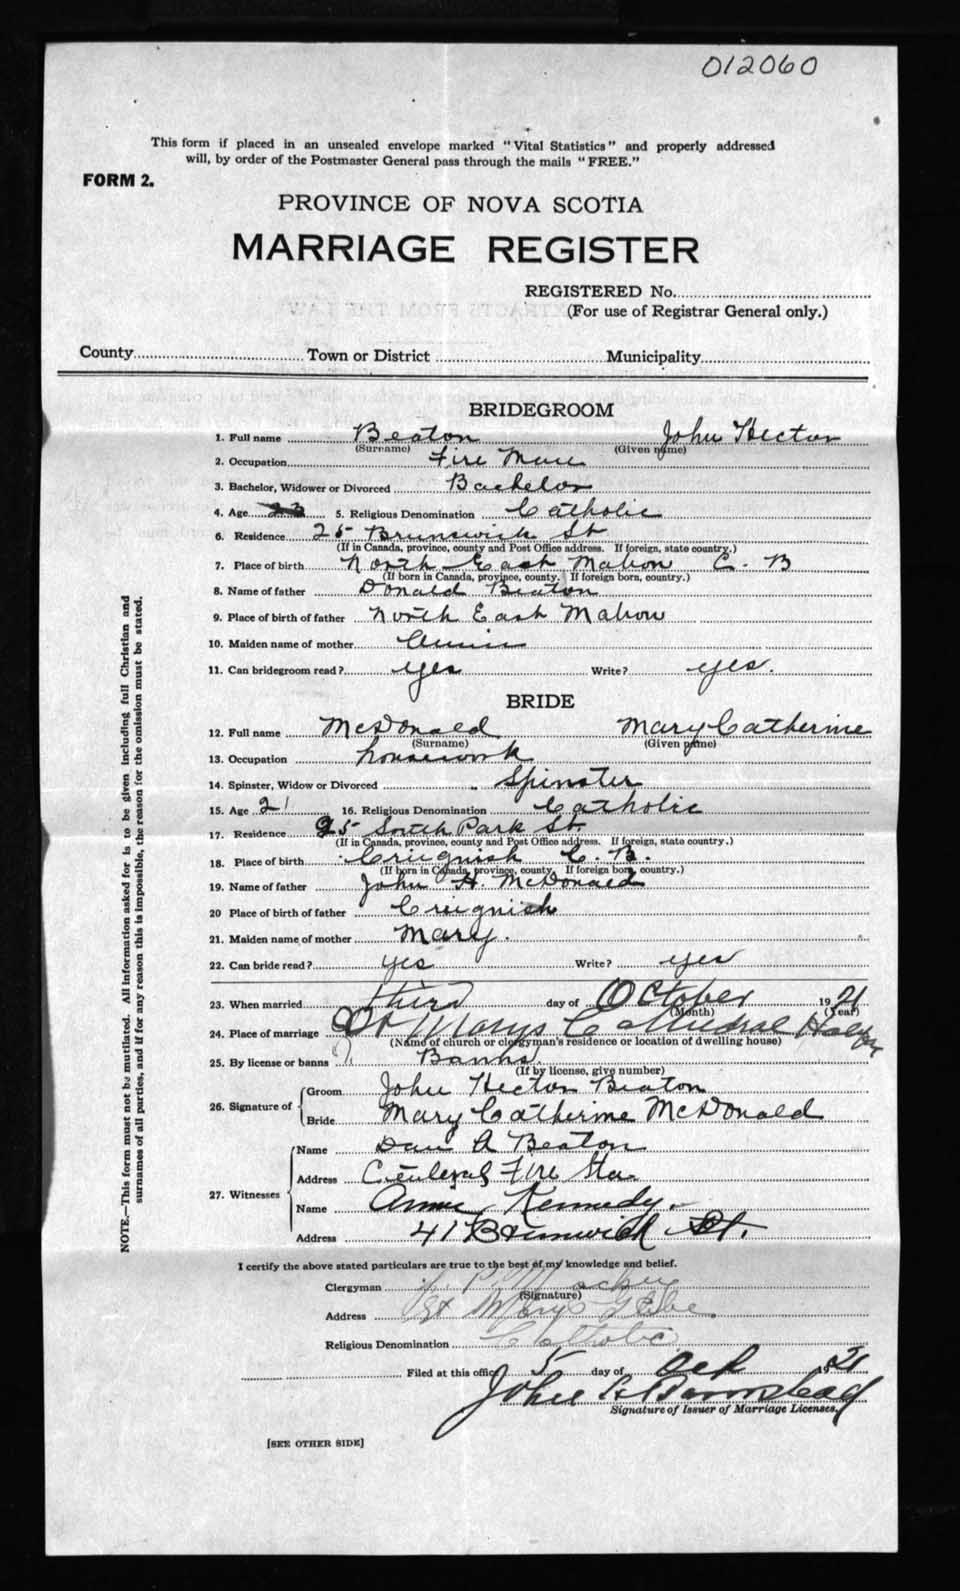 012060
This form if placed in an unsealed envelope marked "Vital Statistics" and properly addressed
will, by order of the Postmaster General pass through the mails "FREE."
FORM 2.
PROVINCE OF NOVA SCOTIA
MARRIAGE REGISTER
REGISTERED No.
(For use of Registrar General only.)
County Town or District Municipality
BRIDEGROOM
1. Full name Beaton John Hector
(Surname) (Given name)
2. Occupation Fire Man
3. Bachelor, Widower or Divorced Bachelor
4. Age 5. Religious Denomination Catholic
6. Residence 25 Brunswick St
(If in Canada, province, county and Post Office address. If foreign, state country.)
7. Place of birth North East Mabou C. B
(If born in Canada, province, county. If foreign born, country.)
8. Name of father Donald Beaton
9. Place of birth of father North East Mabou
10. Maiden name of mother Annie
11. Can bridegroom read? yes Write? yes.
BRIDE
12. Full name McDonald Mary Catherine
(Surname) (Given name)
13. Occupation housework
14. Spinster, Widow or Divorced Spinster
15. Age 21 16. Religious Denomination Catholic
17. Residence 25 South Park St.
(If in Canada, province, county and Post Office address. If foreign, state country.)
18. Place of birth Criegnish C. B.
(If born in Canada, province, county. If foreign born, country.)
19. Name of father John H. McDonald
20 Place of birth of father Criegnish
21. Maiden name of mother Mary.
22. Can bride read? yes Write? yes
23. When married third day of October 1921
(Month) (Year)
24. Place of marriage St Marys Cathedral Halifax
(Name of church or clergyman's residence or location of dwelling house)
25. By license or banns Banns
(If by license, give number)
26. Signature of Groom John Hector Beaton
Bride Mary Catherine McDonald
27. Witnesses Name Dan A Beaton
Address Central Fire Sta
Name Annie Kennedy
Address 41 Brunswick St.
I certify the above stated particulars are true to the best of my knowledge and belief.
Clergyman
(Signature)
Address St Marys Glebe
Religious Denomination Catholic
Filed at this office 5 day of Oct 1921
John
Signature of Issuer of Marriage Licenses.
[SEE OTHER SIDE]
NOTE.—This form must not be mutilated. All information asked for is to be given including full Christian and
surnames of all parties, and if for any reason this is impossible, the reason for the omission must be stated.